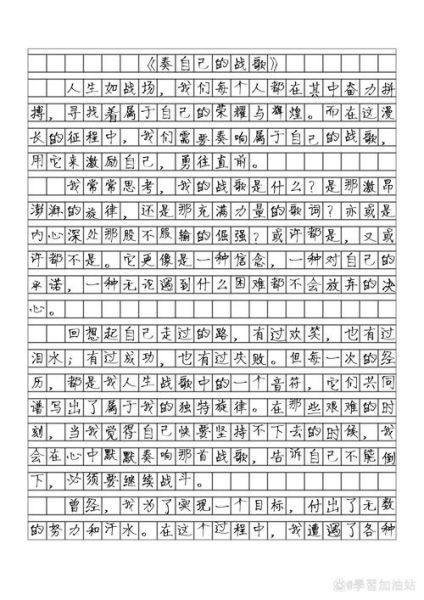 《奏自己的战歌》
人生如战场，我们每个人都在其中奋力拼
搏，寻找着属于自己的荣耀与辉煌。而在这漫
长的征程中，我们需要奏响属于自己的战歌，
用它来激励自己，勇往直前。
我常常思考，我的战歌是什么？是那激昂
澎湃的旋律，还是那充满力量的歌词？亦或是
内心深处那股不服输的倔强？或许都是，又或
许都不是。它更像是一种信念，一种对自己的
承诺，一种无论遇到什么困难都不会放弃的决
心。
回想起自己走过的路，有过欢笑，也有过
泪水；有过成功，也有过失败。但每一次的经
历，都是我人生战歌中的一个音符，它们共同
谱写出了属于我的独特旋律。在那些艰难的时
刻，当我觉得自己快要坚持不下去的时候，我
会在心中默默奏响那首战歌，告诉自己不能倒
下，必须要继续战斗。
曾经，我为了实现一个目标，付出了无数
的努力和汗水。在这个过程中，我遭遇了各种
@學習加油站